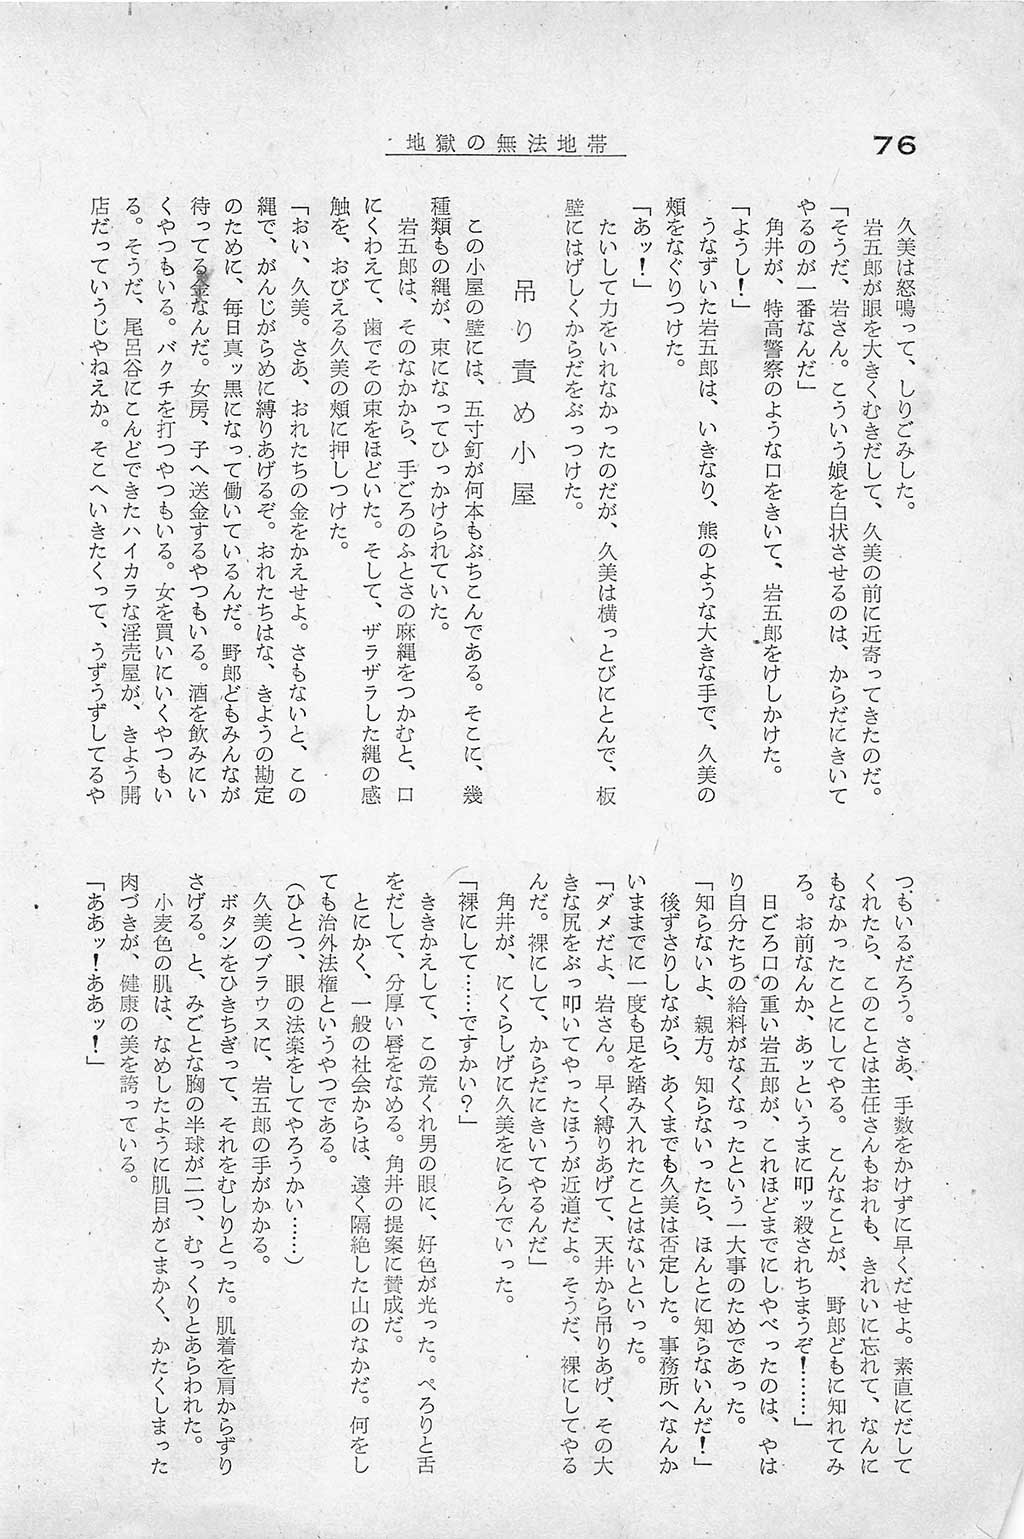 地獄の無法地帯
76
久美は怒鳴って、しりごみした。
岩五郎が眼を大きくむきだして、久美の前に近寄ってきたのだ。
「そうだ、岩さん。こういう娘を白状させるのは、からだにきいて
やるのが一番なんだ」
角井が、特高警察のような口をきいて、岩五郎をけしかけた。
「ようし！」
うなずいた岩五郎は、いきなり、熊のような大きな手で、久美の
頰をなぐりつけた。
「あッ！」
たいして力をいれなかったのだが、久美は横っとびにとんで、板
壁にはげしくからだをぶっつけた。
吊り責め小屋
この小屋の壁には、五寸釘が何本もぶちこんである。そこに、幾
種類もの縄が、束になってひっかけられていた。
岩五郎は、そのなかから、手ごろのふとさの麻縄をつかむと、口
にくわえて、歯でその束をほどいた。そして、ザラザラした縄の感
触を、おびえる久美の頰に押しつけた。
「おい、久美。さあ、おれたちの金をかえせよ。さもないと、この
縄で、がんじがらめに縛りあげるぞ。おれたちはな、きようの勘定
のために、毎日真ッ黒になって働いているんだ。野郎どもみんなが
待ってる金なんだ。女房、子へ送金するやつもいる。酒を飲みにい
くやつもいる。バクチを打つやつもいる。女を買いにいくやつもい
る。そうだ、尾呂谷にこんどできたハイカラな淫売屋が、きよう開
店だっていうじやねえか。そこへいきたくって、うずうずしてるや
つもいるだろう。さあ、手数をかけずに早くだせよ。素直にだして
くれたら、このことは主任さんもおれも、きれいに忘れて、なんに
もなかったことにしてやる。こんなことが、野郎どもに知れてみ
ろ。お前なんか、あッというまに叩ッ殺されちまうぞ！……」
日ごろ口の重い岩五郎が、これほどまでにしやべったのは、やは
り自分たちの給料がなくなったという一大事のためであった。
「知らないよ、親方。知らないったら、ほんとに知らないんだ！」
後ずさりしながら、あくまでも久美は否定した。事務所へなんか
いままでに一度も足を踏み入れたことはないといった。
「ダメだよ、岩さん。早く縛りあげて、天井から吊りあげ、その大
きな尻をぶっ叩いてやったほうが近道だよ。そうだ、裸にしてやる
んだ。裸にして、からだにきいてやるんだ」
角井が、にくらしげに久美をにらんでいった。
「裸にして……ですかい？」
ききかえして、この荒くれ男の眼に、好色が光った。ぺろりと舌
をだして、分厚い唇をなめる。角井の提案に賛成だ。
とにかく、一般の社会からは、遠く隔絶した山のなかだ。何をし
ても治外法権というやつである。
（ひとつ、眼の法楽をしてやろうかい……）
久美のブラウスに、岩五郎の手がかかる。
ボタンをひきちぎって、それをむしりとった。肌着を肩からずり
さげる。と、みごとな胸の半球が二つ、むっくりとあらわれた。
小麦色の肌は、なめしたように肌目がこまかく、かたくしまった
肉づきが、健康の美を誇っている。
「ああッ！ああッ！」